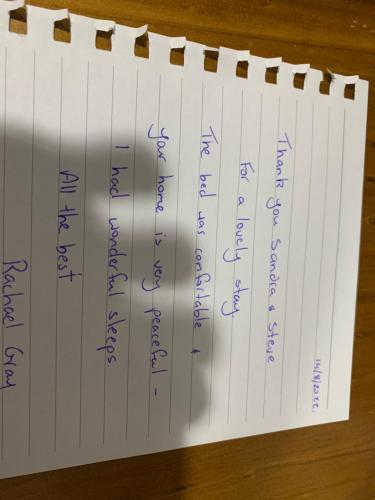 14/8/2022.
Thank you Sandra & Steve
For a lovely stay.
The bed was comfortable &
your home is very peaceful -
I had wonderful sleeps
All the best
Rachael Gray